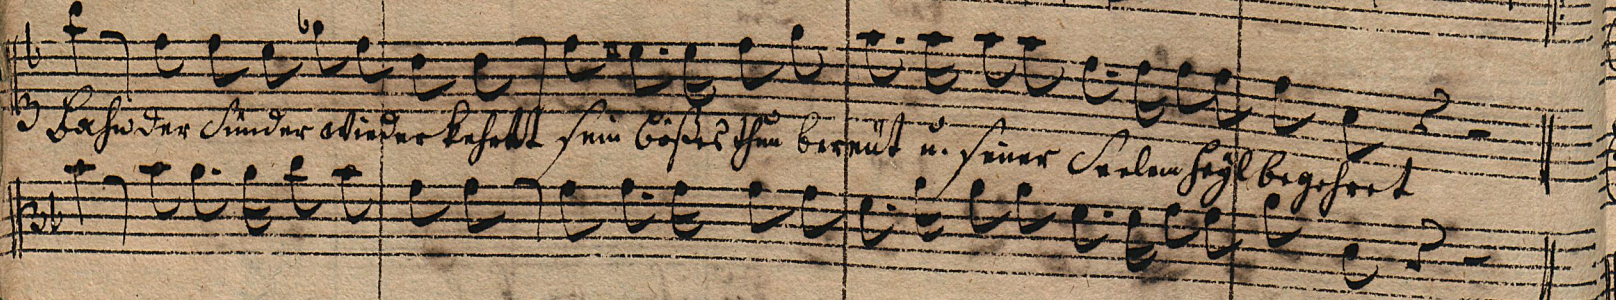 Bahn der Sünder wieder kehrt sein böses thun bereüt u. seiner Seelen heyl begehret